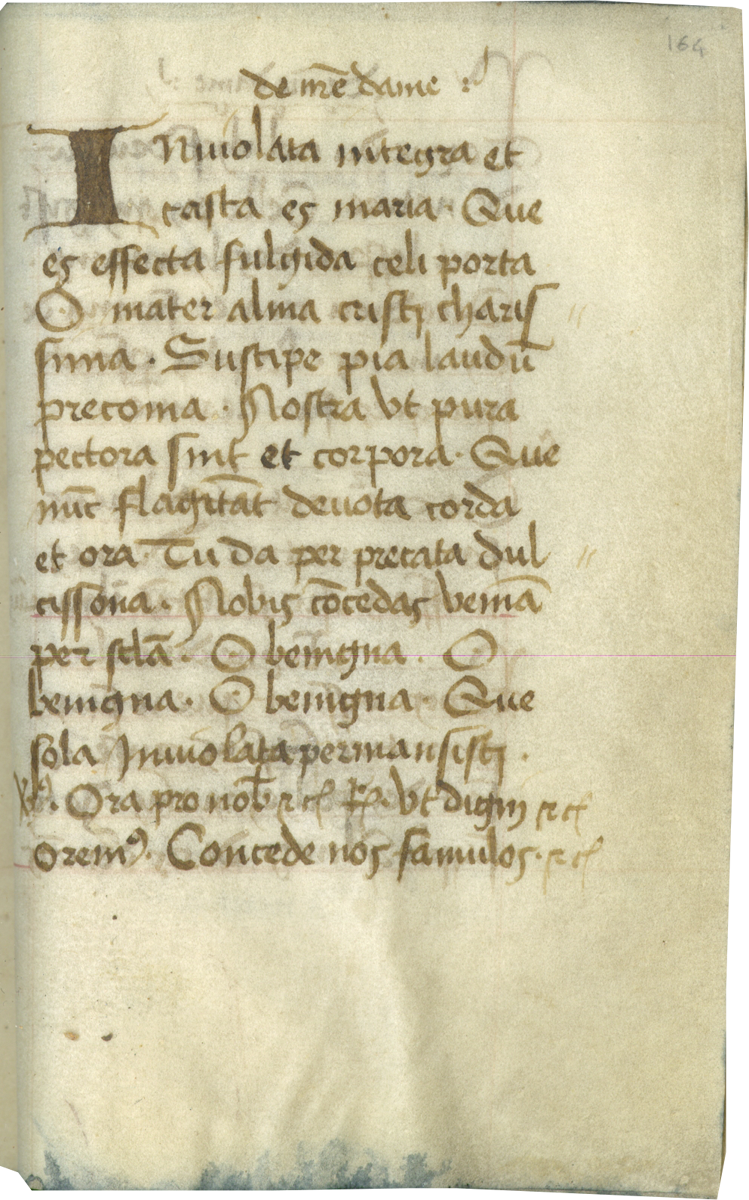 164
de nr̄e dame :
Inuiolata integra et
casta es maria · Que
es effecta fulgida celi porta
O mater alma cristi charis //
sima · Suscipe pia laudū
preconia · Nostra vt pura
pectora sint et corpora · Que
nūc flagitāt deuota corda
et ora · Tu da per precata dul //
cissona · Nobis cōcedas veniā
per sclā · O benigna · O
benigna · O benigna · Que
sola Inuiolata permansisti ·
Ora pro nob̄ &c̄ Vt digni &c̄
Orem⁹ · Concede nos famulos · &c̄